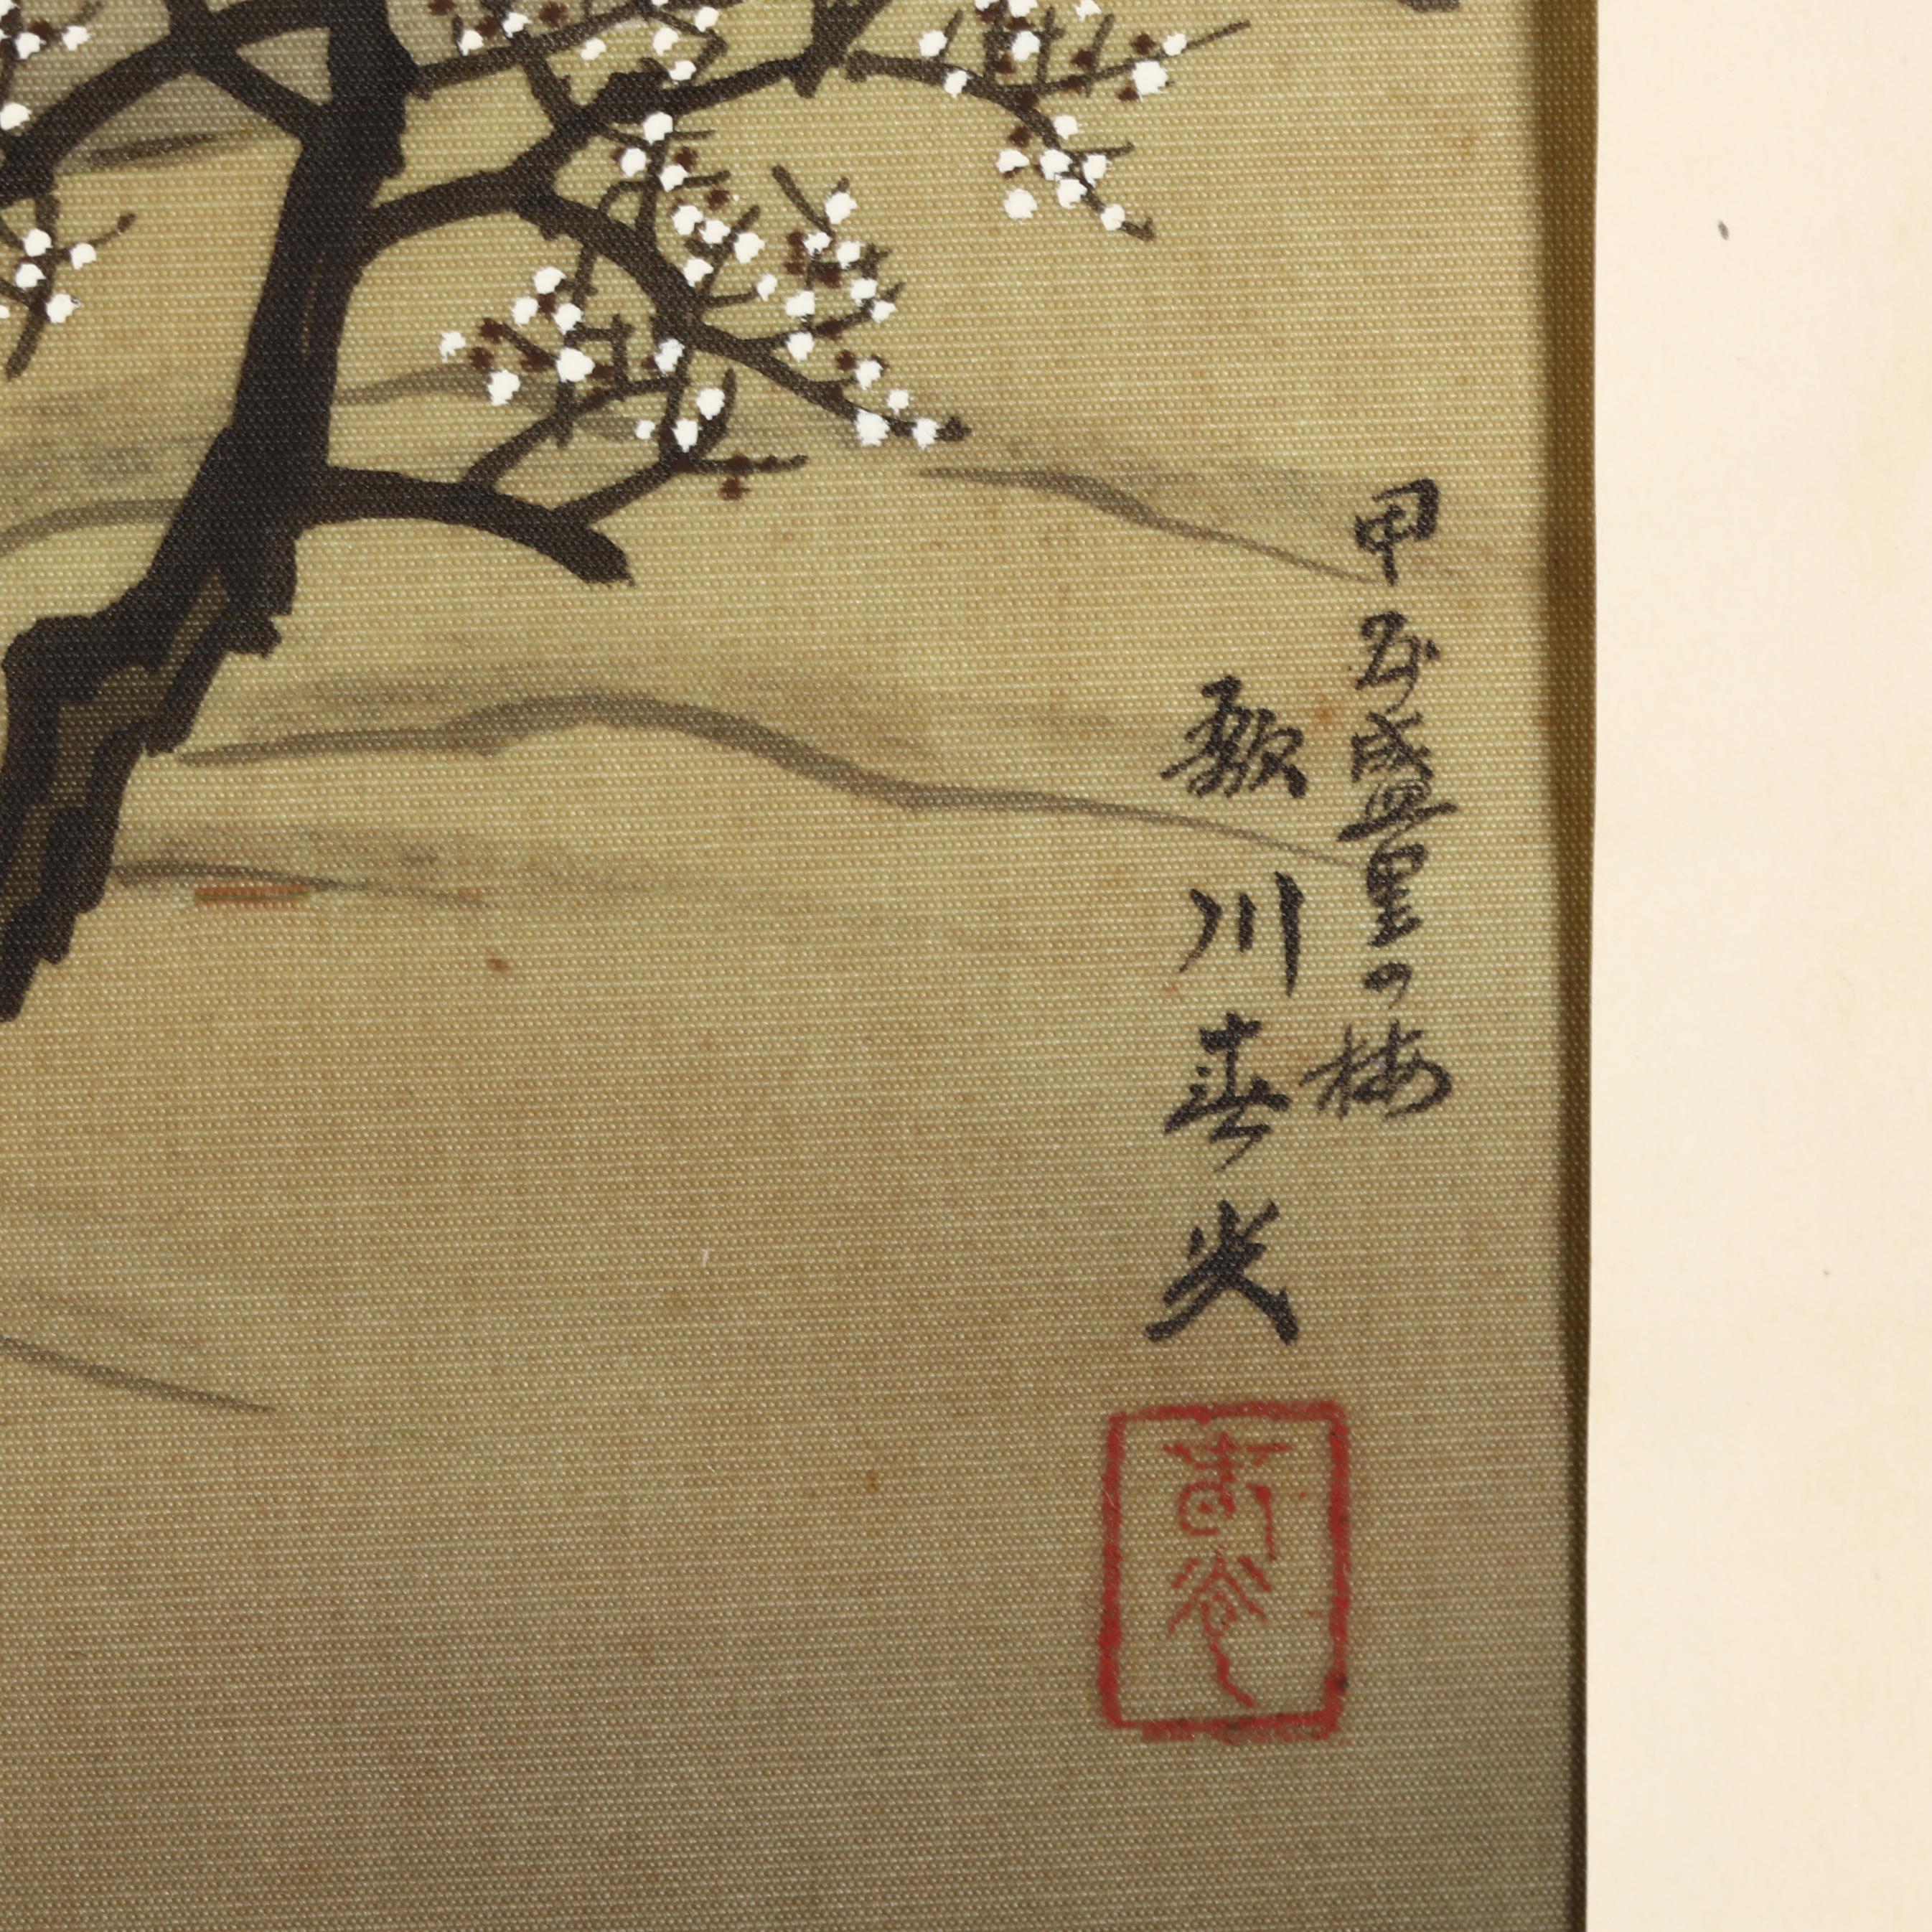 盛里の梅
歌川春光